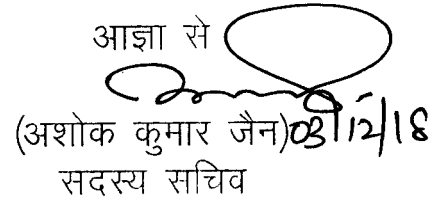 आज्ञा से
(अशोक कुमार जैन) 03/12/18
सदस्य सचिव